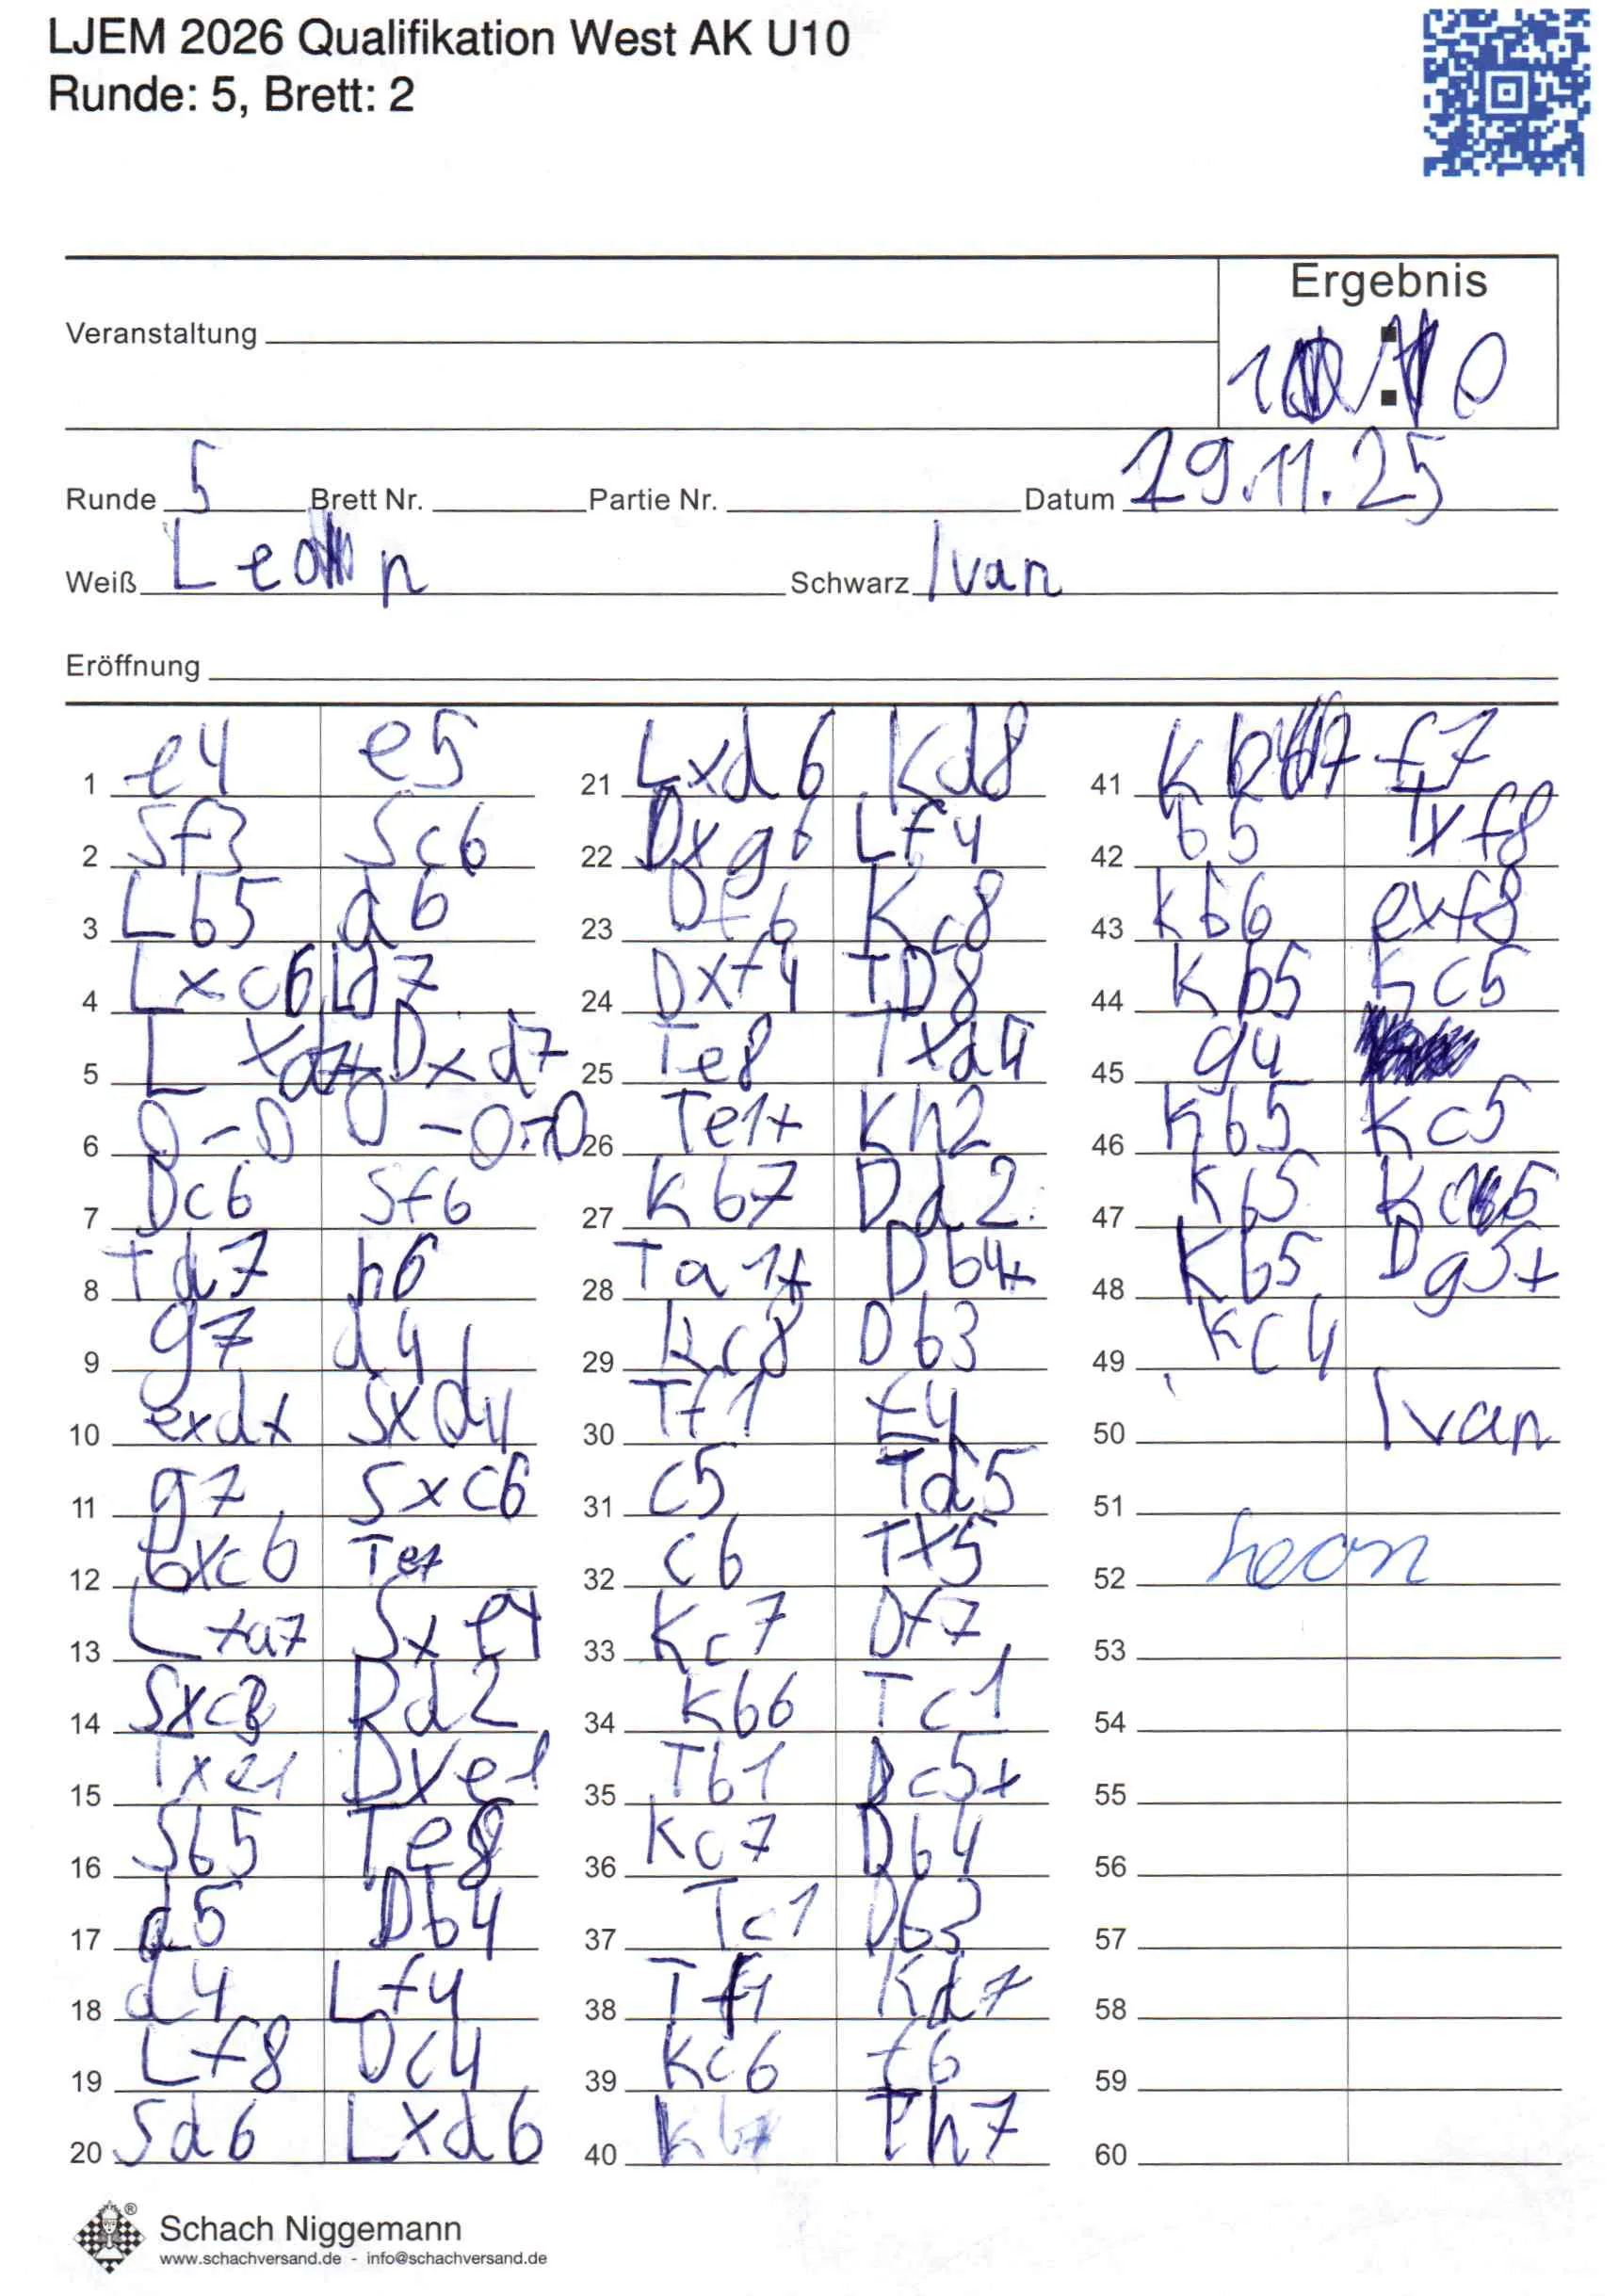 LJEM 2026 Qualifikation West AK U10
Runde: 5, Brett: 2
Ergebnis
1 : 0
Veranstaltung
Runde 5 Brett Nr. Partie Nr. Datum 29.11.25
Weiß Leon Schwarz Ivan
Eröffnung
1 e4 e5
2 Sf3 Sc6
3 Lb5 d6
4 Lxc6 Ld7
5 Lxd7+ Dxd7
6 0-0 0-0-0
7 Dc6 Sf6
8 Td7 h6
9 g7 d4
10 exdx Sxd4
11 g7 Sxc6
12 bxc6 Te7
13 Lxa7 Sxe4
14 Sxc3 Dd2
15 Txe1 Dxe1
16 Sb5 Te8
17 d5 Db4
18 d4 Lf4
19 Lf8 Dc4
20 Sd6 Lxd6
21 Lxd6 Kd8
22 Dxg6 Lf4
23 Df6 Kc8
24 Dxf4 TD8
25 Te8 Txd4
26 Te1+ Kh2
27 Kb7 Dd2
28 Ta1+ Db4+
29 Kc8 Db3
30 Tf1 f4
31 c5 Td5
32 c6 Tx5
33 Kc7 Df7
34 Kb6 Tc1
35 Tb1 Dc5+
36 Kc7 Db4
37 Tc1 Db3
38 Tf1 Kd7
39 Kc6 f6
40 Kb7 Th7
41 Kb7 f7
42 b5 Txf8
43 Kb6 exf8
44 Kb5 Kc5
45 g4
46 Kb5 Kc5
47 Kb5 Kc5
48 Kb5 Dg5+
49 Kc4
50 Ivan
51
52 Leon
53
54
55
56
57
58
59
60
®
Schach Niggemann
www.schachversand.de - info@schachversand.de